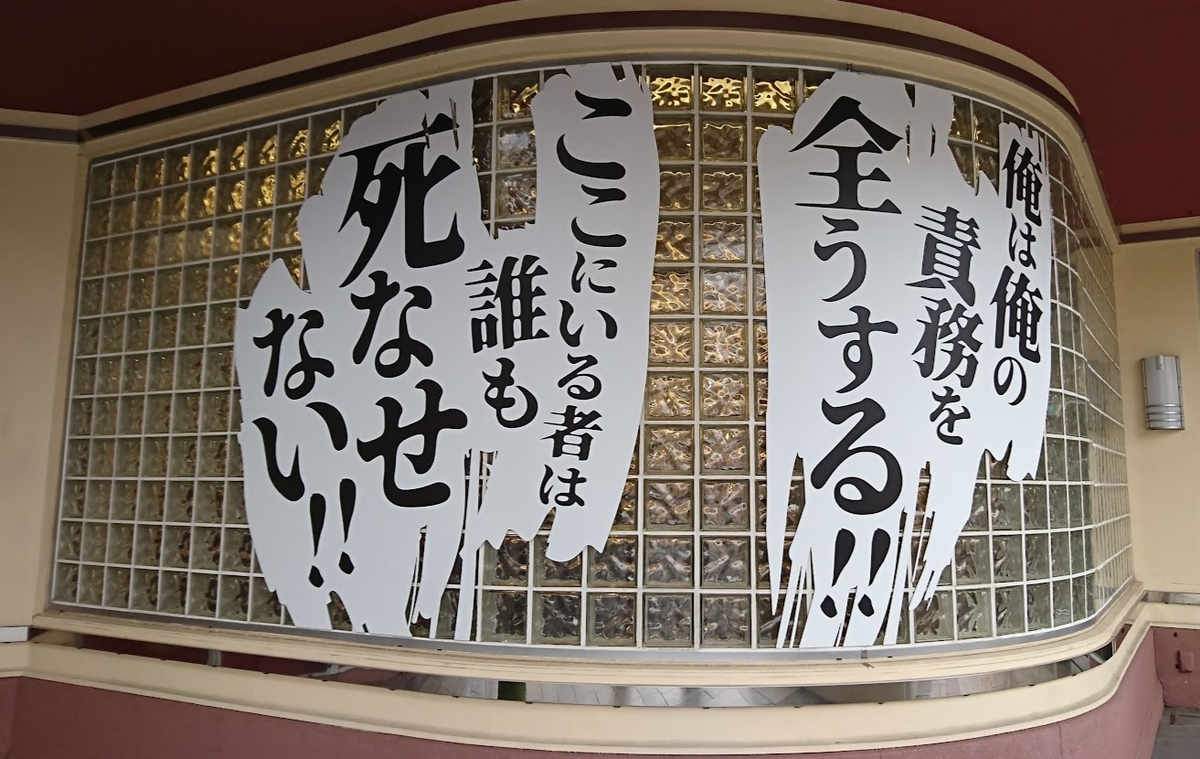 俺は俺の
責務を
全うする!!
ここにいる者は
誰も
死なせ
ない!!